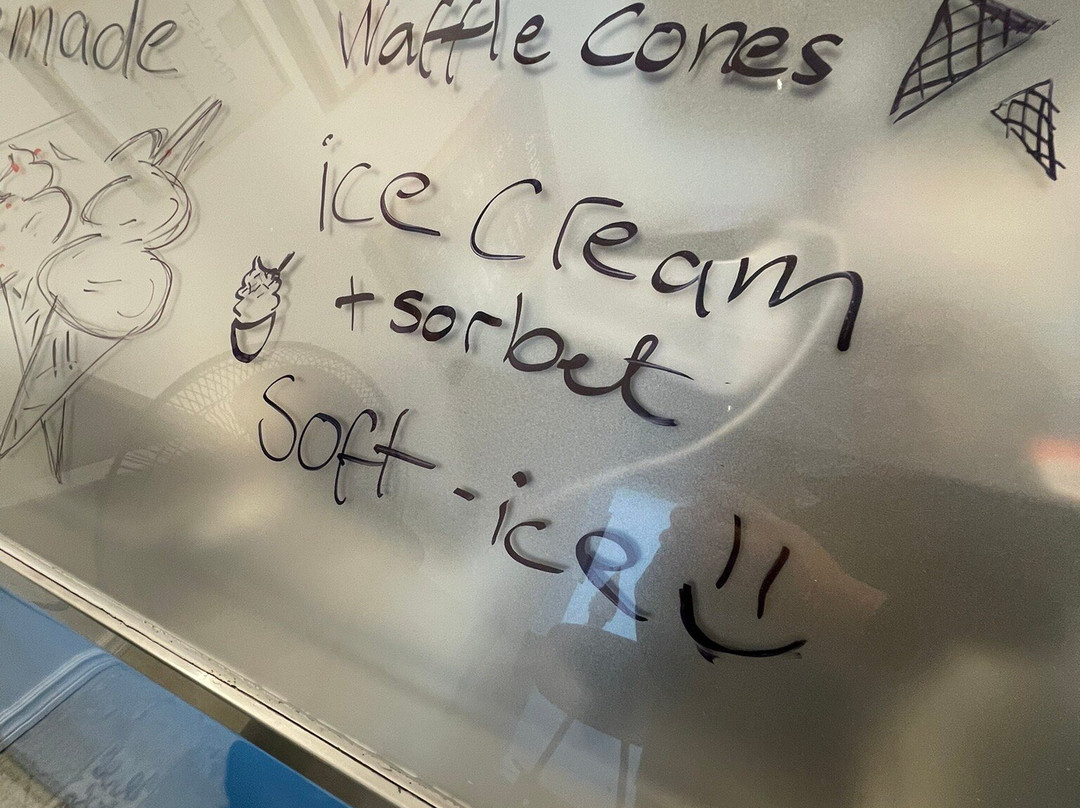 made Waffle Cones
ice Cream
+ sorbet
Soft-ice